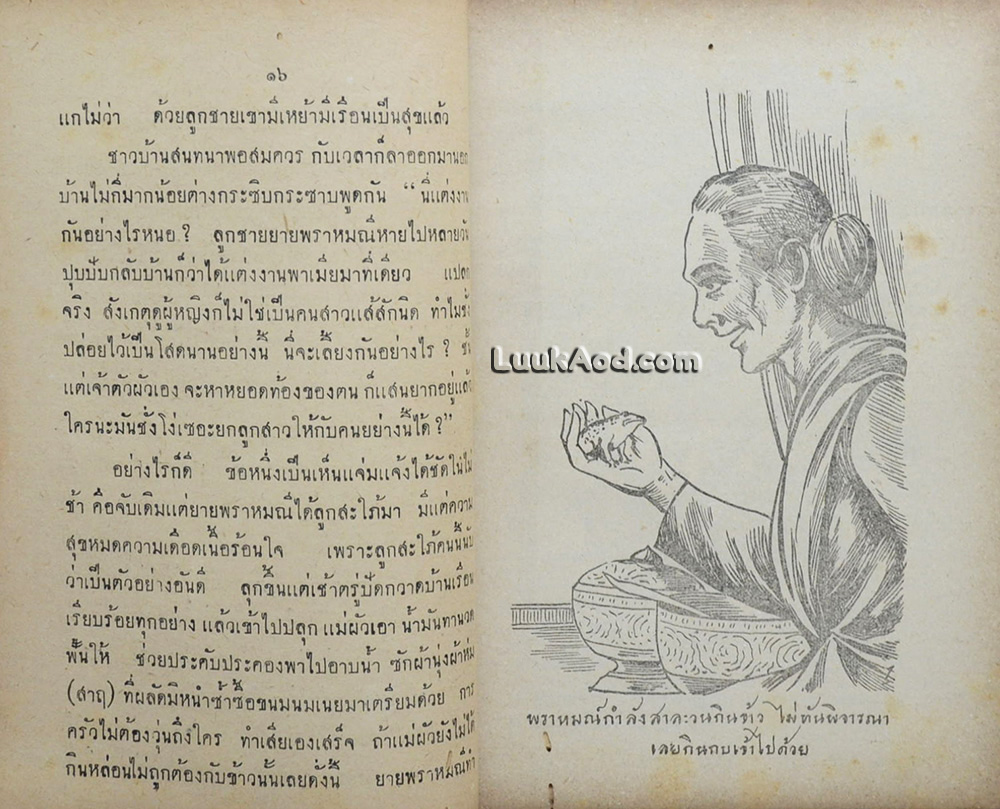 ๑๖
แกไม่ว่า ด้วยลูกชายเขามีเหย้ามีเรือนเป็นสุขแล้ว
ชาวบ้านสนทนาพอสมควร กับเวลาก็ลาออกมานอก
บ้านไม่กี่มากน้อยต่างกระซิบกระซาบพูดกัน “ นี่แต่งงาน
กันอย่างไรหนอ ? ลูกชายยายพราหมณีหายไปหลายวัน
ปุบปับกลับบ้านก็ว่าได้แต่งงานพาเมียมาทีเดียว แปลก
จริง สังเกตุดูผู้หญิงก็ไม่ใช่เป็นคนสาวแส้สักนิด ทำไม
ปล่อยไว้เป็นโสดนานอย่างนี้ นี่จะเลี้ยงกันอย่างไร ?
แต่เจ้าตัวผัวเอง จะหาหยอดท้องของตน ก็แสนยากอยู่แล้ว
ใครนะมันชั่งโง่เซอะยกลูกสาวให้กับคนยย่างนี้ได้ ? ”
อย่างไรก็ดี ข้อหนึ่งเป็นเห็นแจ่มแจ้งได้ชัดในไม่
ช้า คือจับเดิมแต่ยายพราหมณีได้ลูกสะใภ้มา มีแต่ความ
สุขหมดความเดือดเนื้อร้อนใจ เพราะลูกสะใภ้คนนี้นับ
ว่าเป็นตัวอย่างอันดี ลุกขึ้นแต่เช้าตรู่ปัดกวาดบ้านเรือน
เรียบร้อยทุกอย่าง แล้วเข้าไปปลุก แม่ผัวเอา น้ำมันทานวด
ฟั้นให้ ช่วยประคับประคองพาไปอาบน้ำ ซักผ้านุ่งผ้าห่ม
(สาฎ) ที่ผลัดมิหนำซ้ำซื้อขนมนมเนยมาเตรียมด้วย การ
ครัวไม่ต้องวุ่นถึงใคร ทำเสียเองเสร็จ ถ้าแม่ผัวยังไม่ได้
กินหล่อนไม่ถูกต้องกับข้าวนั้นเลยดั่งนี้ ยายพราหมณีทำ
LuukAod.com
พราหมณ์กำลังสาละวนกินข้าว ไม่ทันพิจารณา
เลยกินกบเข้าไปด้วย